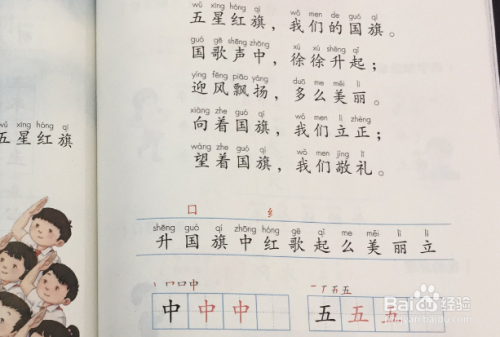 wǔ xīng hóng qí wǒ men de guó qí
五星红旗，我们的国旗。
guó gē shēng zhōng xú xú shēng qǐ
国歌声中，徐徐升起；
yíng fēng piāo yáng duō me měi lì
迎风飘扬，多么美丽。
xiàng zhe guó qí wǒ men lì zhèng
向着国旗，我们立正；
wàng zhe guó qí wǒ men jìng lǐ
望着国旗，我们敬礼。
wǔ xīng hóng qí
五星红旗
口 纟
shēng guó qí zhōng hóng gē qǐ me měi lì lì
升国旗中红歌起么美丽立
中 中 中
五 五 五
Baidu 经验